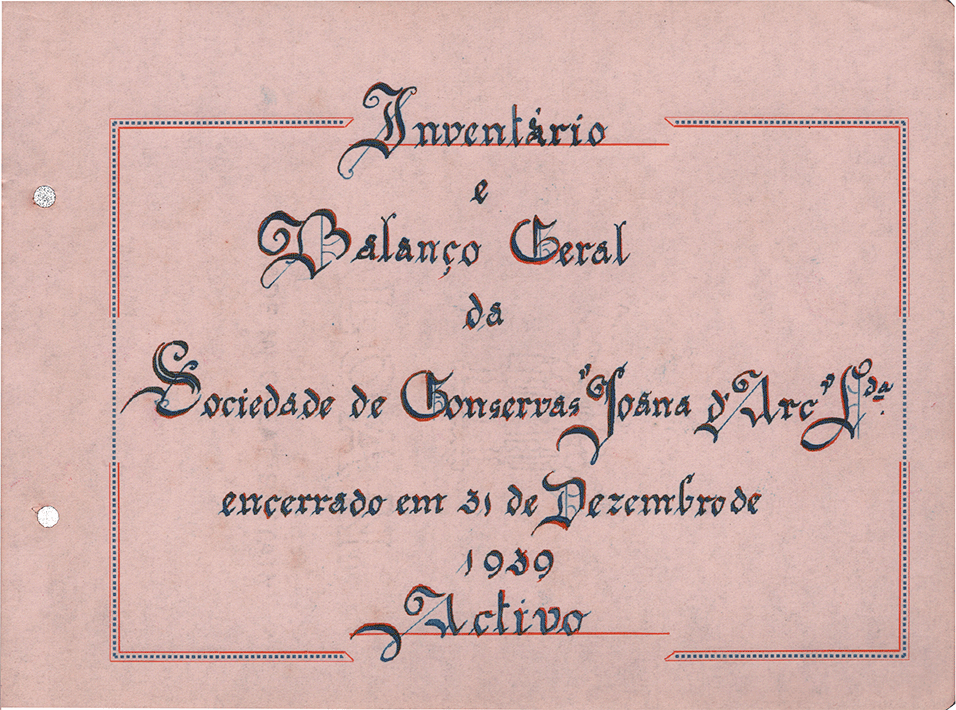 Inventário
e
Balanço Geral
da
Sociedade de Conservas "Joana d'Arc" Lda.
encerrado em 31 de Dezembro de
1939
Activo